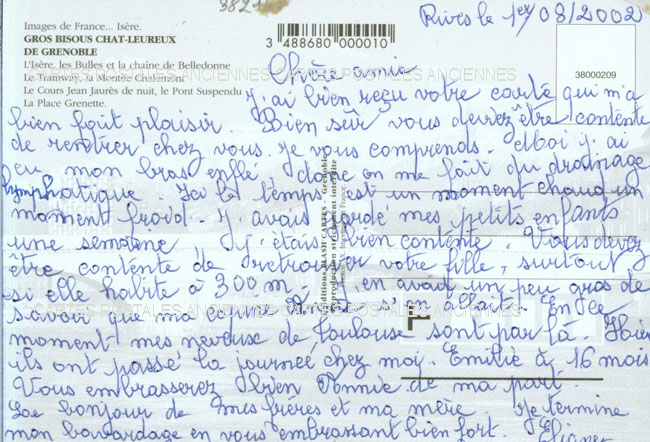 3821
Images de France... Isère.
GROS BISOUS CHAT-LEUREUX
DE GRENOBLE
L'Isère, les Bulles et la chaîne de Belledonne
Le Tramway, la Montée Chalemont
Le Cours Jean Jaurès de nuit, le Pont Suspendu
La Place Grenette.
3 488680 000010
38000209
CARTES POSTALES ANCIENNES
Rives le 1er/08/2002
Chère amie
J'ai bien reçu votre carte qui m'a
bien fait plaisir. Bien sûr vous devez être contente
de rentrer chez vous. Je vous comprends. Moi j'ai
eu mon bras enflé, donc on me fait du drainage
lymphatique. Ici le temps est un moment chaud un
moment froid. J'avais gardé mes petits enfants
une semaine j'étais bien contente. Vous devez
être contente de retrouver votre fille, surtout
si elle habite à 300 m. J'en avait un peu gros de
savoir que ma s'en allait. En ce
moment mes neveuse de Toulouse sont par là. Hier
ils ont passé la journée chez moi. Emilie à 16 mois
Vous embrasserez bien Annie de ma part.
Le bonjour de mes frères et ma mère. Je termine
mon bavardage en vous embrassant bien fort.